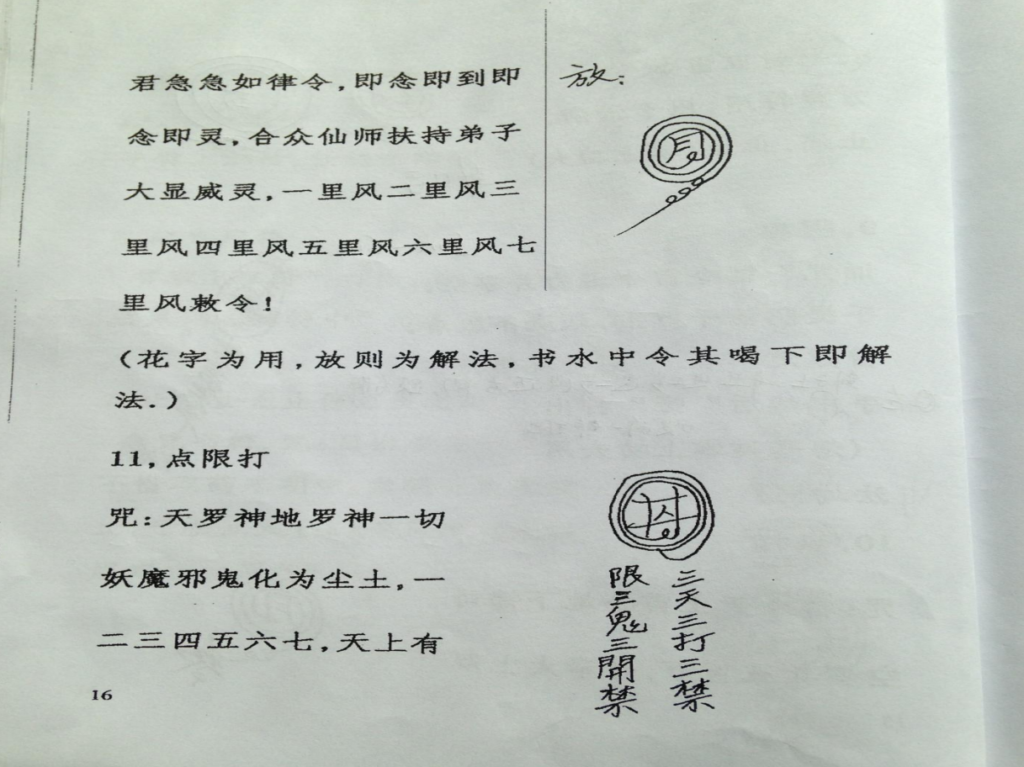 君急急如律令，即念即到即
念即灵，合众仙师扶持弟子
大显威灵，一里风二里风三
里风四里风五里风六里风七
里风敕令！
放：
（花字为用，放则为解法，书水中令其喝下即解
法.）
11，点限打
咒：天罗神地罗神一切
妖魔邪鬼化为尘土，一
二三四五六七，天上有
三天三打三禁
限三鬼三開禁
16